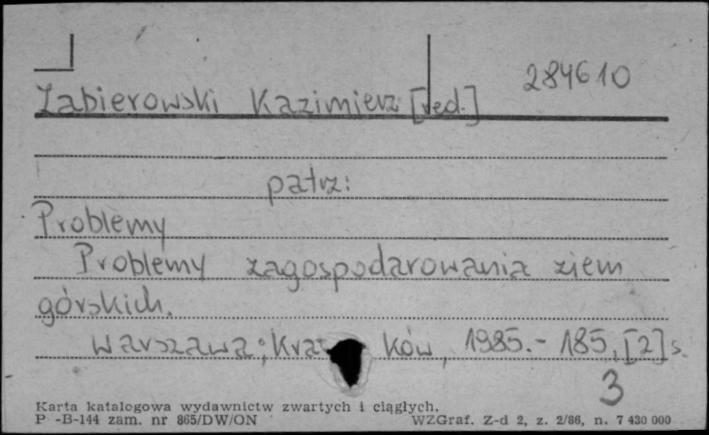 284610
Zabierowski Kazimierz [red.]
patrz:
Problemy
Problemy zagospodarowania ziem
górskich.
Warszawa; Kra ków, 1985.- 185, [2] s.
3
Karta katalogowa wydawnictw zwartych i ciągłych.
P -B-144 zam. nr 865/DW/ON WZGraf. Z-d 2, z. 2/86, n. 7 430 000